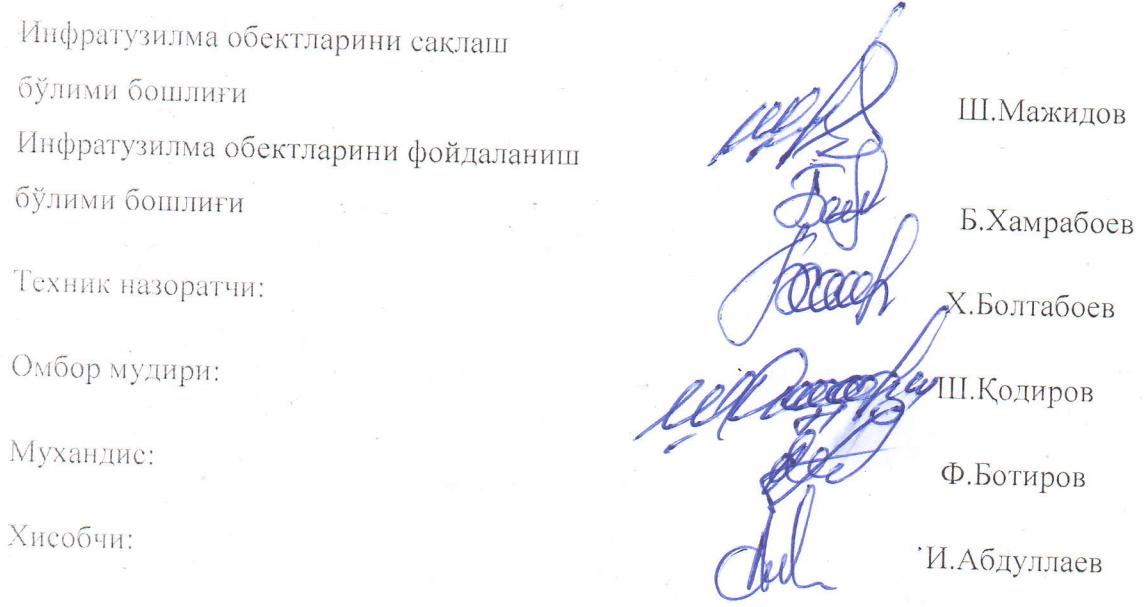 Инфратузилма обектларини сақлаш
бўлими бошлиғи
Ш.Мажидов
Инфратузилма обектларини фойдаланиш
бўлими бошлиғи
Б.Хамрабоев
Техник назоратчи:
Х.Болтабоев
Омбор мудири:
Ш.Қодиров
Мухандис:
Ф.Ботиров
Хисобчи:
И.Абдуллаев